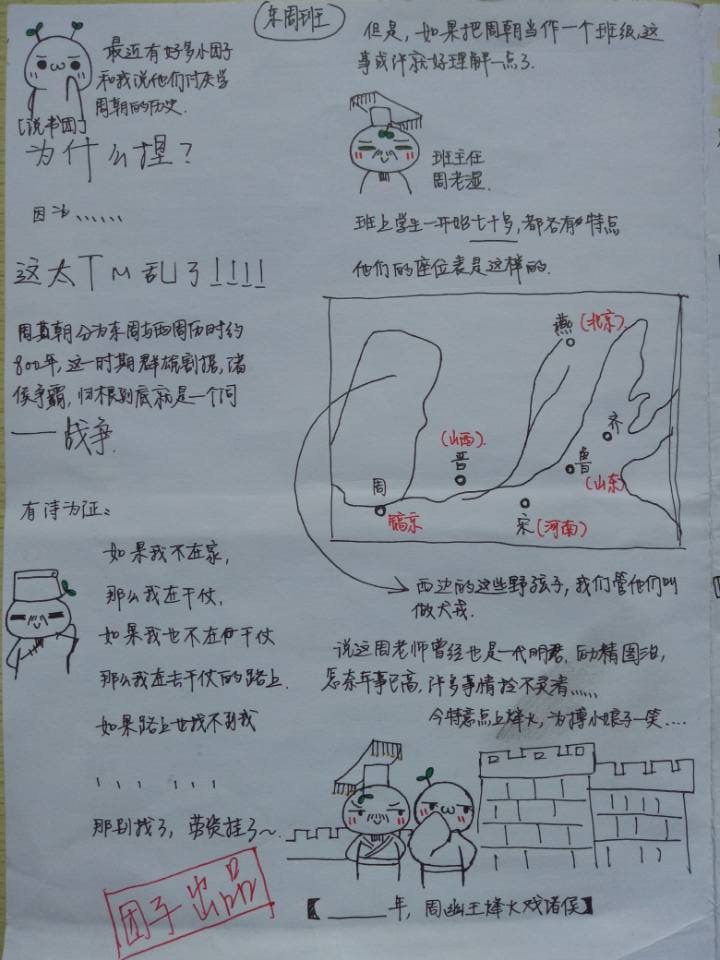 东周班
最近有好多小团子
和我说他们讨厌学
周朝的历史.
[说书团]
为什么捏？
因为......
这太TM乱了!!!!
周朝分为东周与西周历时约
800年，这一时期群雄割据，诸
侯争霸，归根到底就是一个问
——战争.
有诗为证：
如果我不在家，
那么我在干仗，
如果我也不在干仗
那么我在去干仗的路上.
如果路上也找不到我
......
那别找了，劳资挂了~.
团子出品
但是，如果把周朝当作一个班级，这
事或许就好理解一点了.
班主任
周老湿.
班上学生一开始七十多，都各有特点
他们的座位表是这样的.
燕 (北京).
齐
(山西).
晋
鲁
(山东)
周
镐京
宋 (河南)
西边的这些野孩子，我们管他们叫
做犬戎.
说这周老师曾经也是一代明君，励精图治，
怎奈年事已高，许多事情捡不灵清.....
今特意点上烽火，为搏小娘子一笑....
【______年，周幽王烽火戏诸侯】